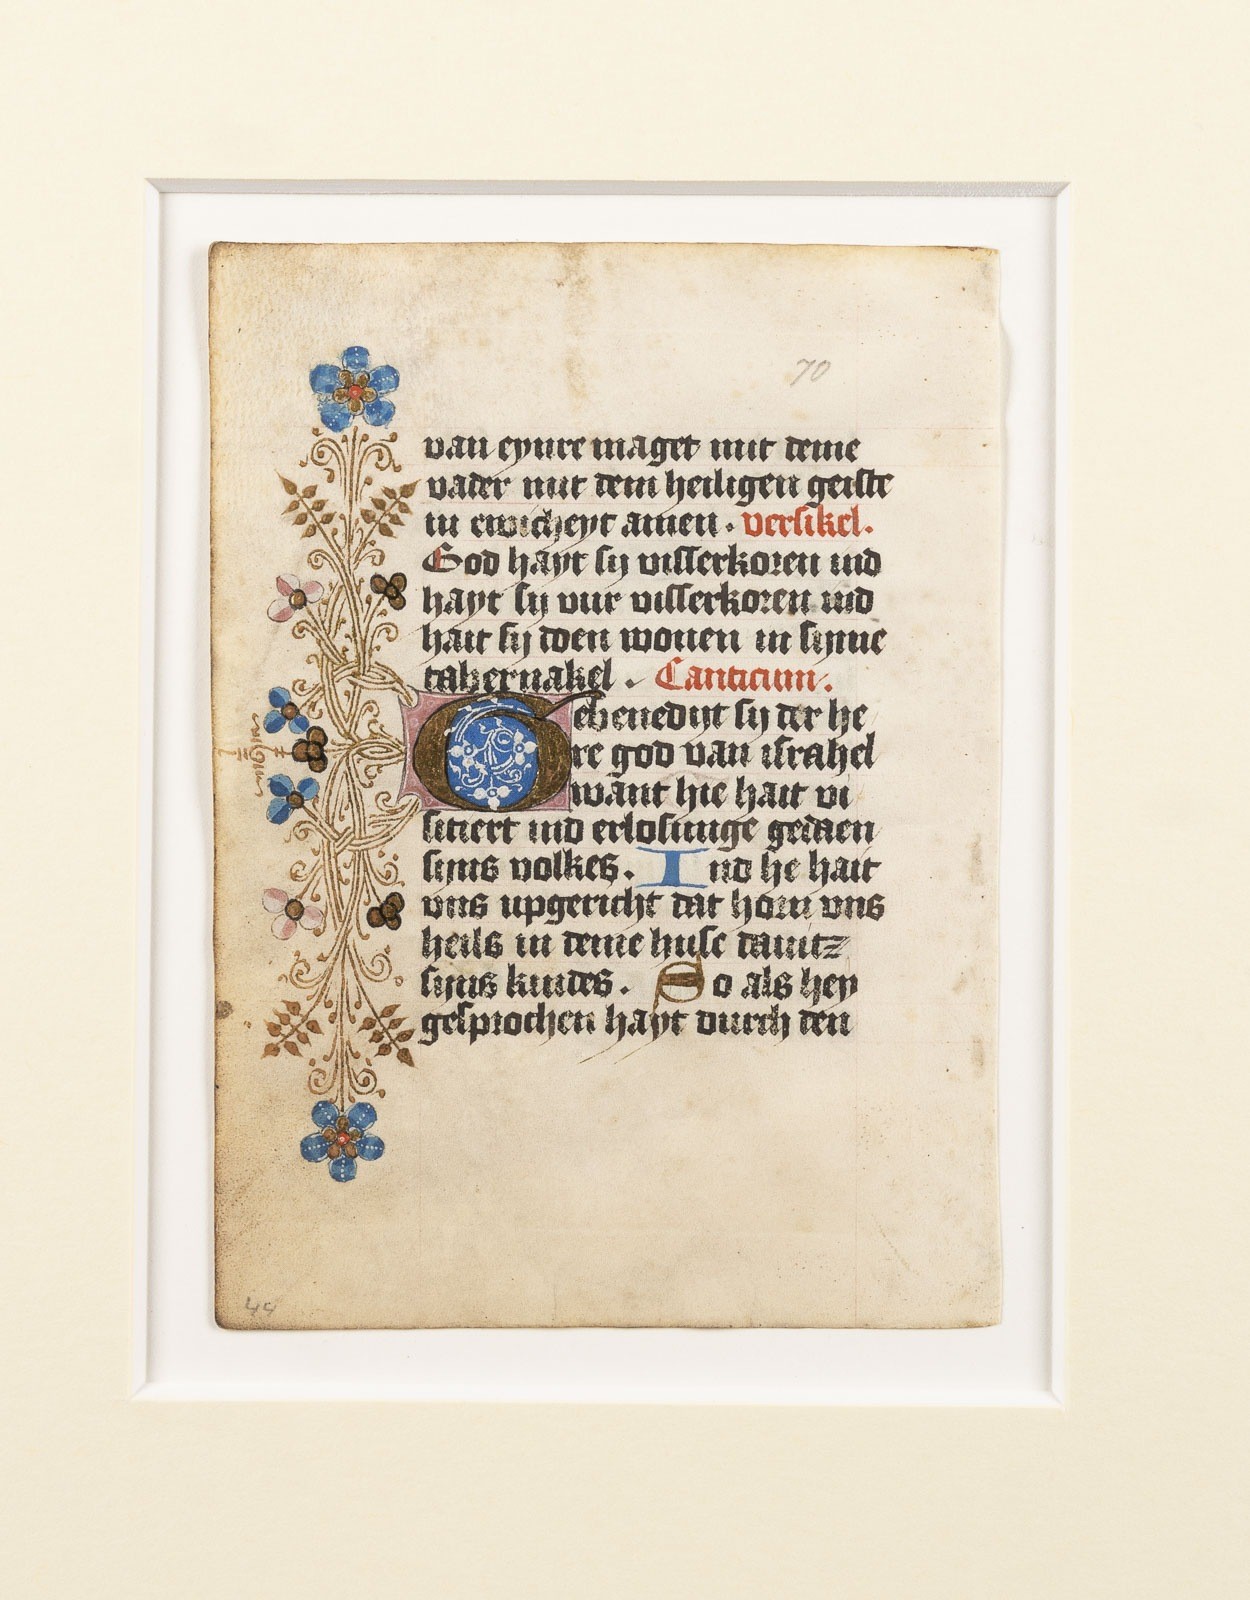 70
van eynre maget mit deme
vader mit dem heiligen geiste
in ewicheyt amen . versikel.
God hayt sy visserkoren ind
hayt sy vur visserkoren ind
hait sy doen wonen in synne
tabernakel . Canticum.
Gebenedyt sy der he
re god van israhel
want hie hait vi
sitiert ind erlosunge gedaen
syns volkes. Ind he hait
vns upgericht dat horn vns
heils in deme huse dauitz
syns kindes. So als hey
gesprochen hayt durch den
44